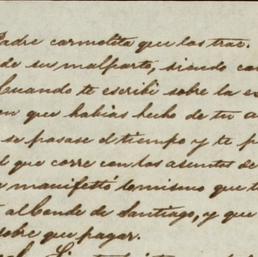 Padre carmelita que las trae.
de su malparto, siendo con
Cuando te escribí sobre la e
on que habias hecho de tu a
se pasase el tiempo y te p
l que corre con los asuntos de
manifestó lo mismo que t
al Conde de Santiago, y que
sobre que pagar.